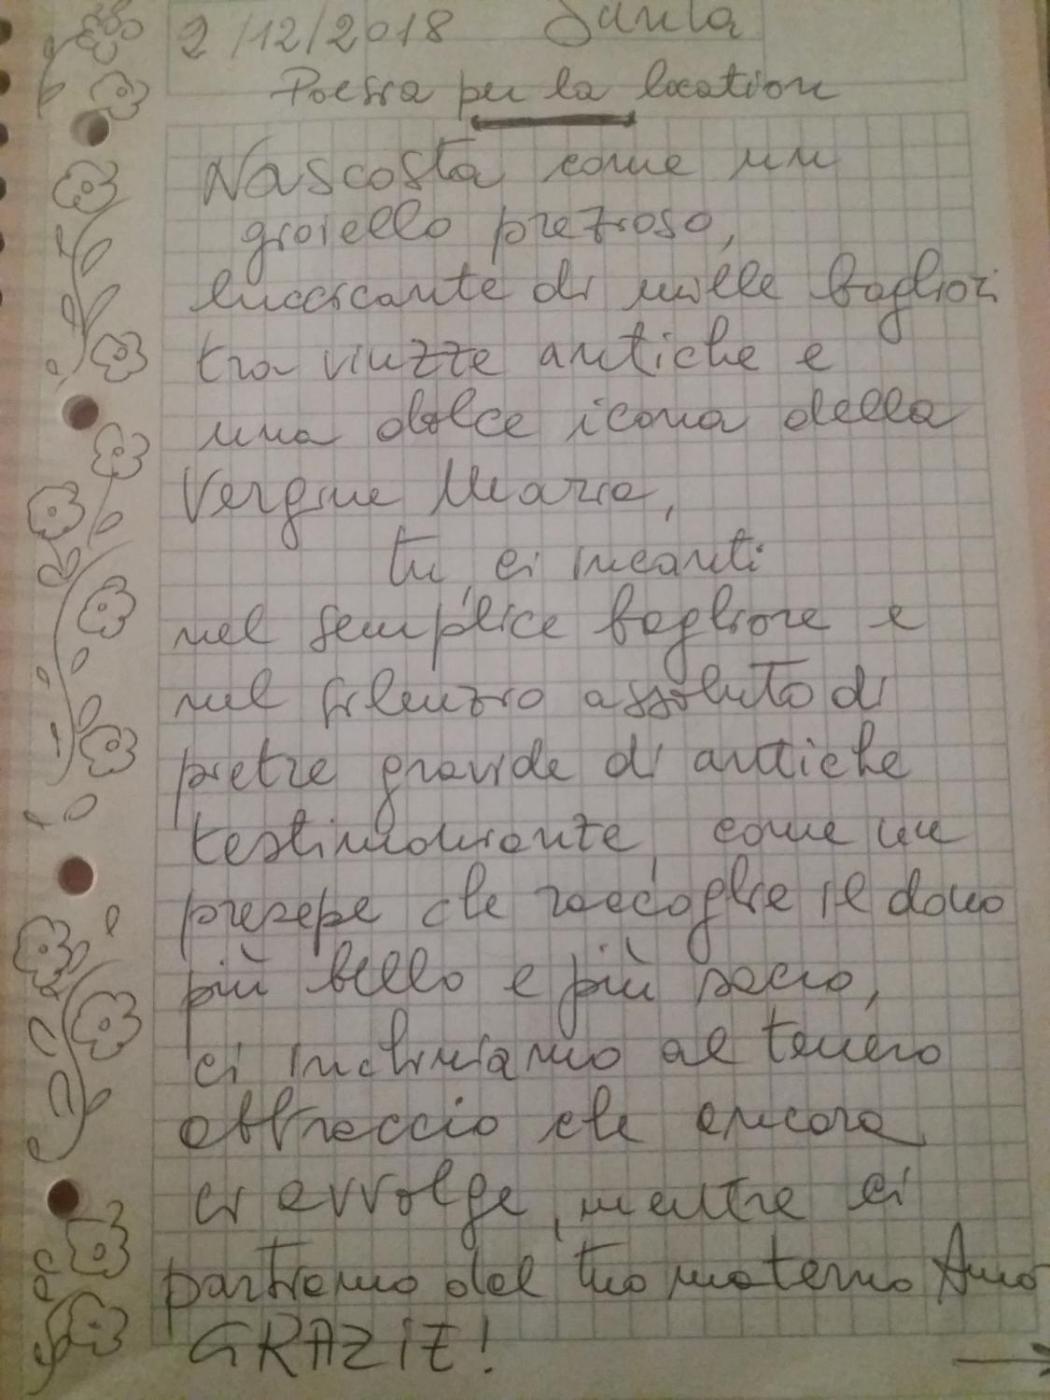 2/12/2018
Poesia per la location
Nascosta come un
gioiello prezioso,
luccicante di mille bagliori
tra viuzze antiche e
una dolce icona della
Vergine Maria,
tu ci incanti
nel semplice bagliore e
nel silenzio assoluto di
pietre gravide di antiche
testimonianze, come un
presepe che raccoglie il dono
più bello e più sacro,
ci inchiniamo al tenero
abbraccio che ancora
ci avvolge, mentre ci
partiamo dal tuo materno Amo
GRAZIE!